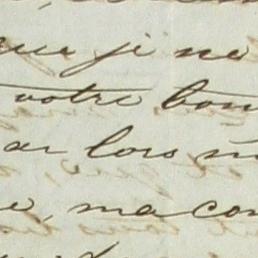 que je ne
votre bon
ar lors n
e, ma con